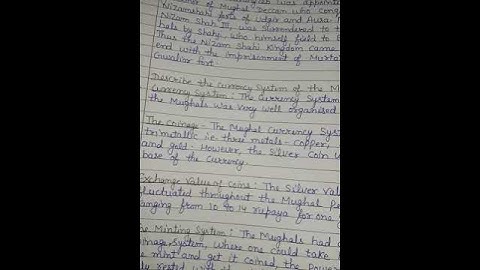 was appointed
of Mughal Deccan who conq
Nizamshahi forts of Udgir and Ausa.
Nizam Shah III, was surrendered to t
hals by Shahji, who himself field to B
Thus the Nizam Shahi Kingdom came
end with the imprisonment of Murta
Gwalior fort.
Describe the currency System of the M
Currency System: The Currency System
the Mughals was very well organised
The Coinage - The Mughal Currency Syst
trimetallic i.e. three metals - Copper,
and gold. However, the Silver Coin w
base of the Currency.
Exchange Value of Coins: The Silver Val
fluctuated throughout the Mughal Pe
ranging from 10 to 14 rupaya for one
The Minting System: The Mughals had a
inage System, where one could take
the mint and get it coined, the power
ly rested with